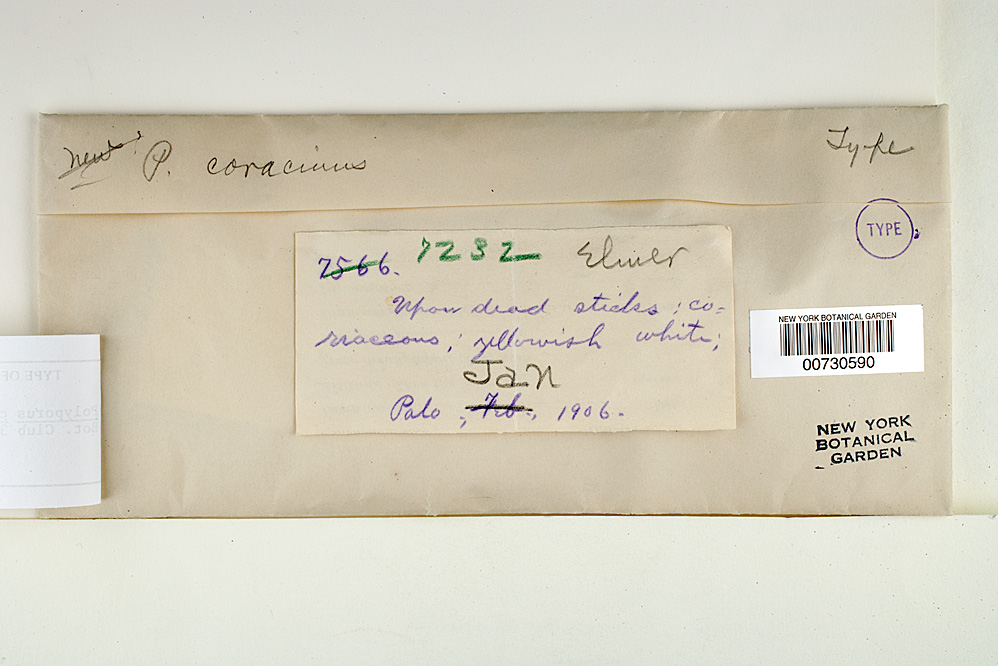 new?
P. coracinus
Type
TYPE
7566. 7232 Elmer
Upon dead sticks; co=
riaceous; yellowish white;
Jan
Palo, Feb., 1906.
NEW YORK BOTANICAL GARDEN
00730590
NEW YORK
BOTANICAL
GARDEN
TYPE OF
Polyporus
Bot. Club